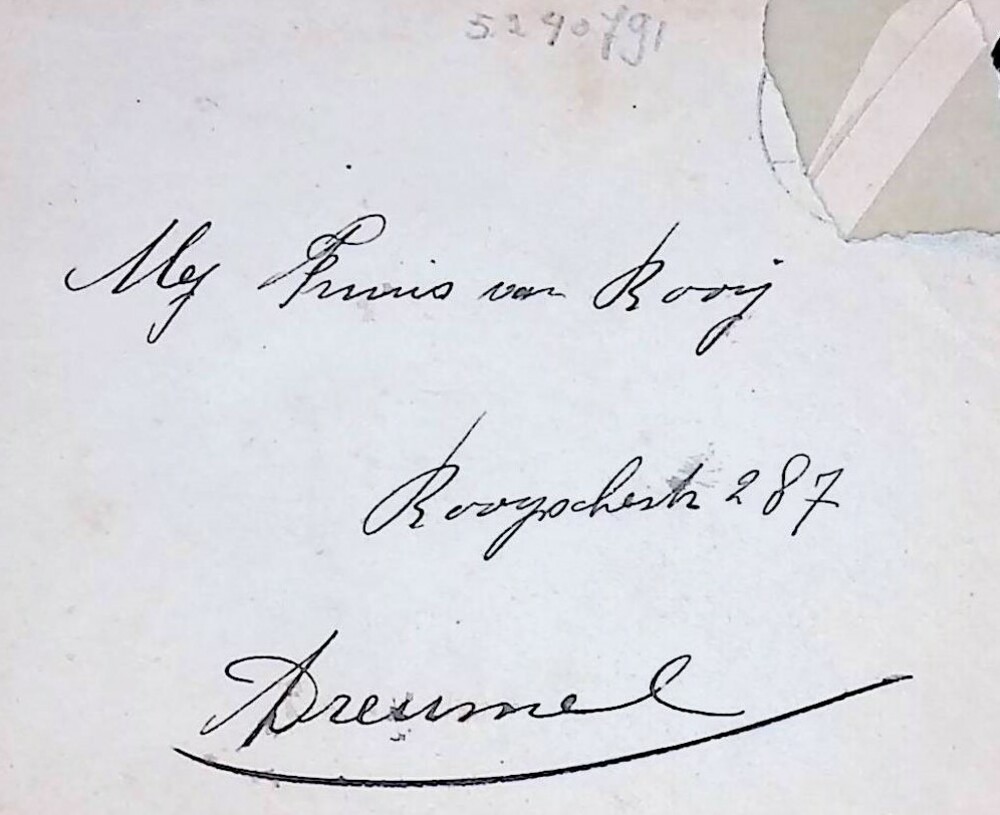 5240791
Mej van Rooij
Rooyschestr 287
Dreumel